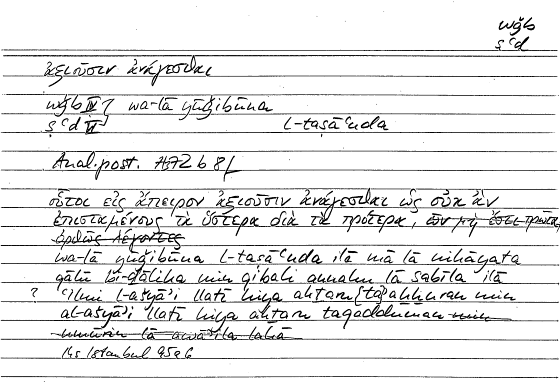 wǧb
ṣʿd
ἀξιοῦσιν ἀνάγεσθαι
wǧb IV wa-lā yūǧibūna
ṣʿd VI l-taṣāʿuda
Anal. post. A 72 b 8f
οὗτοι εἰς ἄπειρον ἀξιοῦσιν ἀνάγεσθαι ὡς οὐκ ἂν
ἐπισταμένους τὰ ὕστερα διὰ τὰ πρότερα, ὧν μή ἐστι πρῶτα,
ὀρθῶς λέγοντες
wa-lā yūǧibūna l-taṣāʿuda ilā mā lā nihāyata
qālū bi-ḏālika min qibali annahu lā sabīla ilā
? ʿilmi l-ašyāʾi llatī hiya akṯaru {ta}ʾaḫḫuran min
al-ašyāʾi llatī hiya akṯaru taqadduman min
umūrin lā awāʾila lahā
Ms Istanbul 95a6